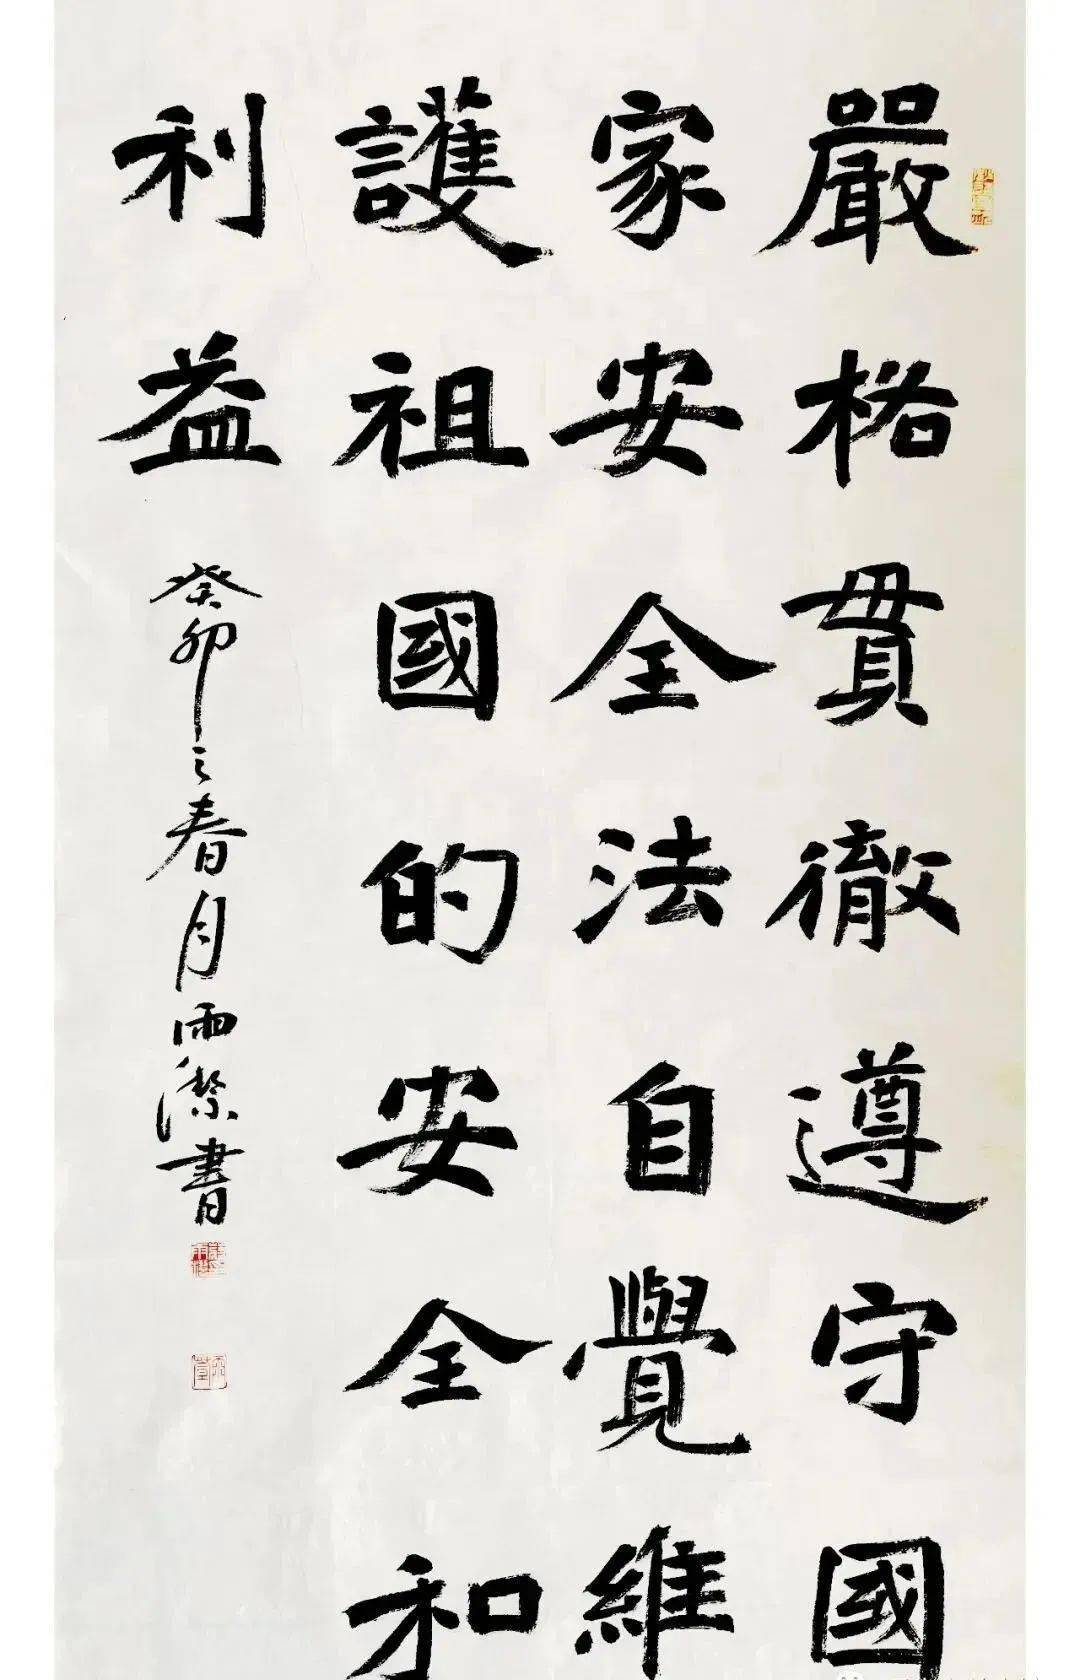 嚴格貫徹遵守國
家安全法自覺維
護祖國的安全和
利益
癸卯之春月雨潔書